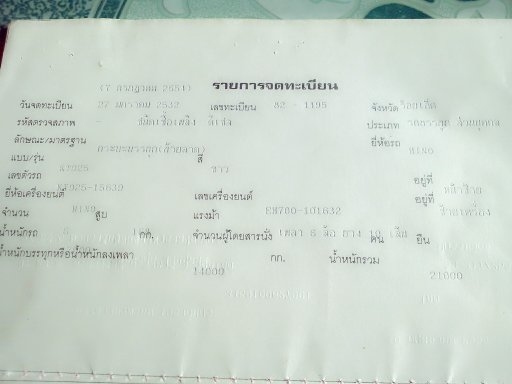 (7 กรกฎาคม 2551) รายการจดทะเบียน
วันจดทะเบียน 27 มกราคม 2532 เลขทะเบียน 82 - 1195 จังหวัด ร้อยเอ็ด
รหัสตรวจสภาพ - ชนิดเชื่อเพลิง ดีเซล ประเภท ส่วนบุคคล
ลักษณะ/มาตรฐาน ยี่ห้อรถ HINO
แบบ/รุ่น KT925 สี ขาว
เลขตัวรถ KT925-15639 อยู่ที่ หน้าซ้าย
ยี่ห้อเครื่องยนต์ HINO เลขเครื่องยนต์ EH700-101632 อยู่ที่ ซ้ายเครื่อง
จำนวน 6 สูบ แรงม้า เพลา ล้อ ยาง 10 เส้น
น้ำหนักรถ กก. จำนวนผู้โดยสารนั่ง คน ยืน
น้ำหนักบรรทุกหรือน้ำหนักลงเพลา 14000 กก. น้ำหนักรวม 21000